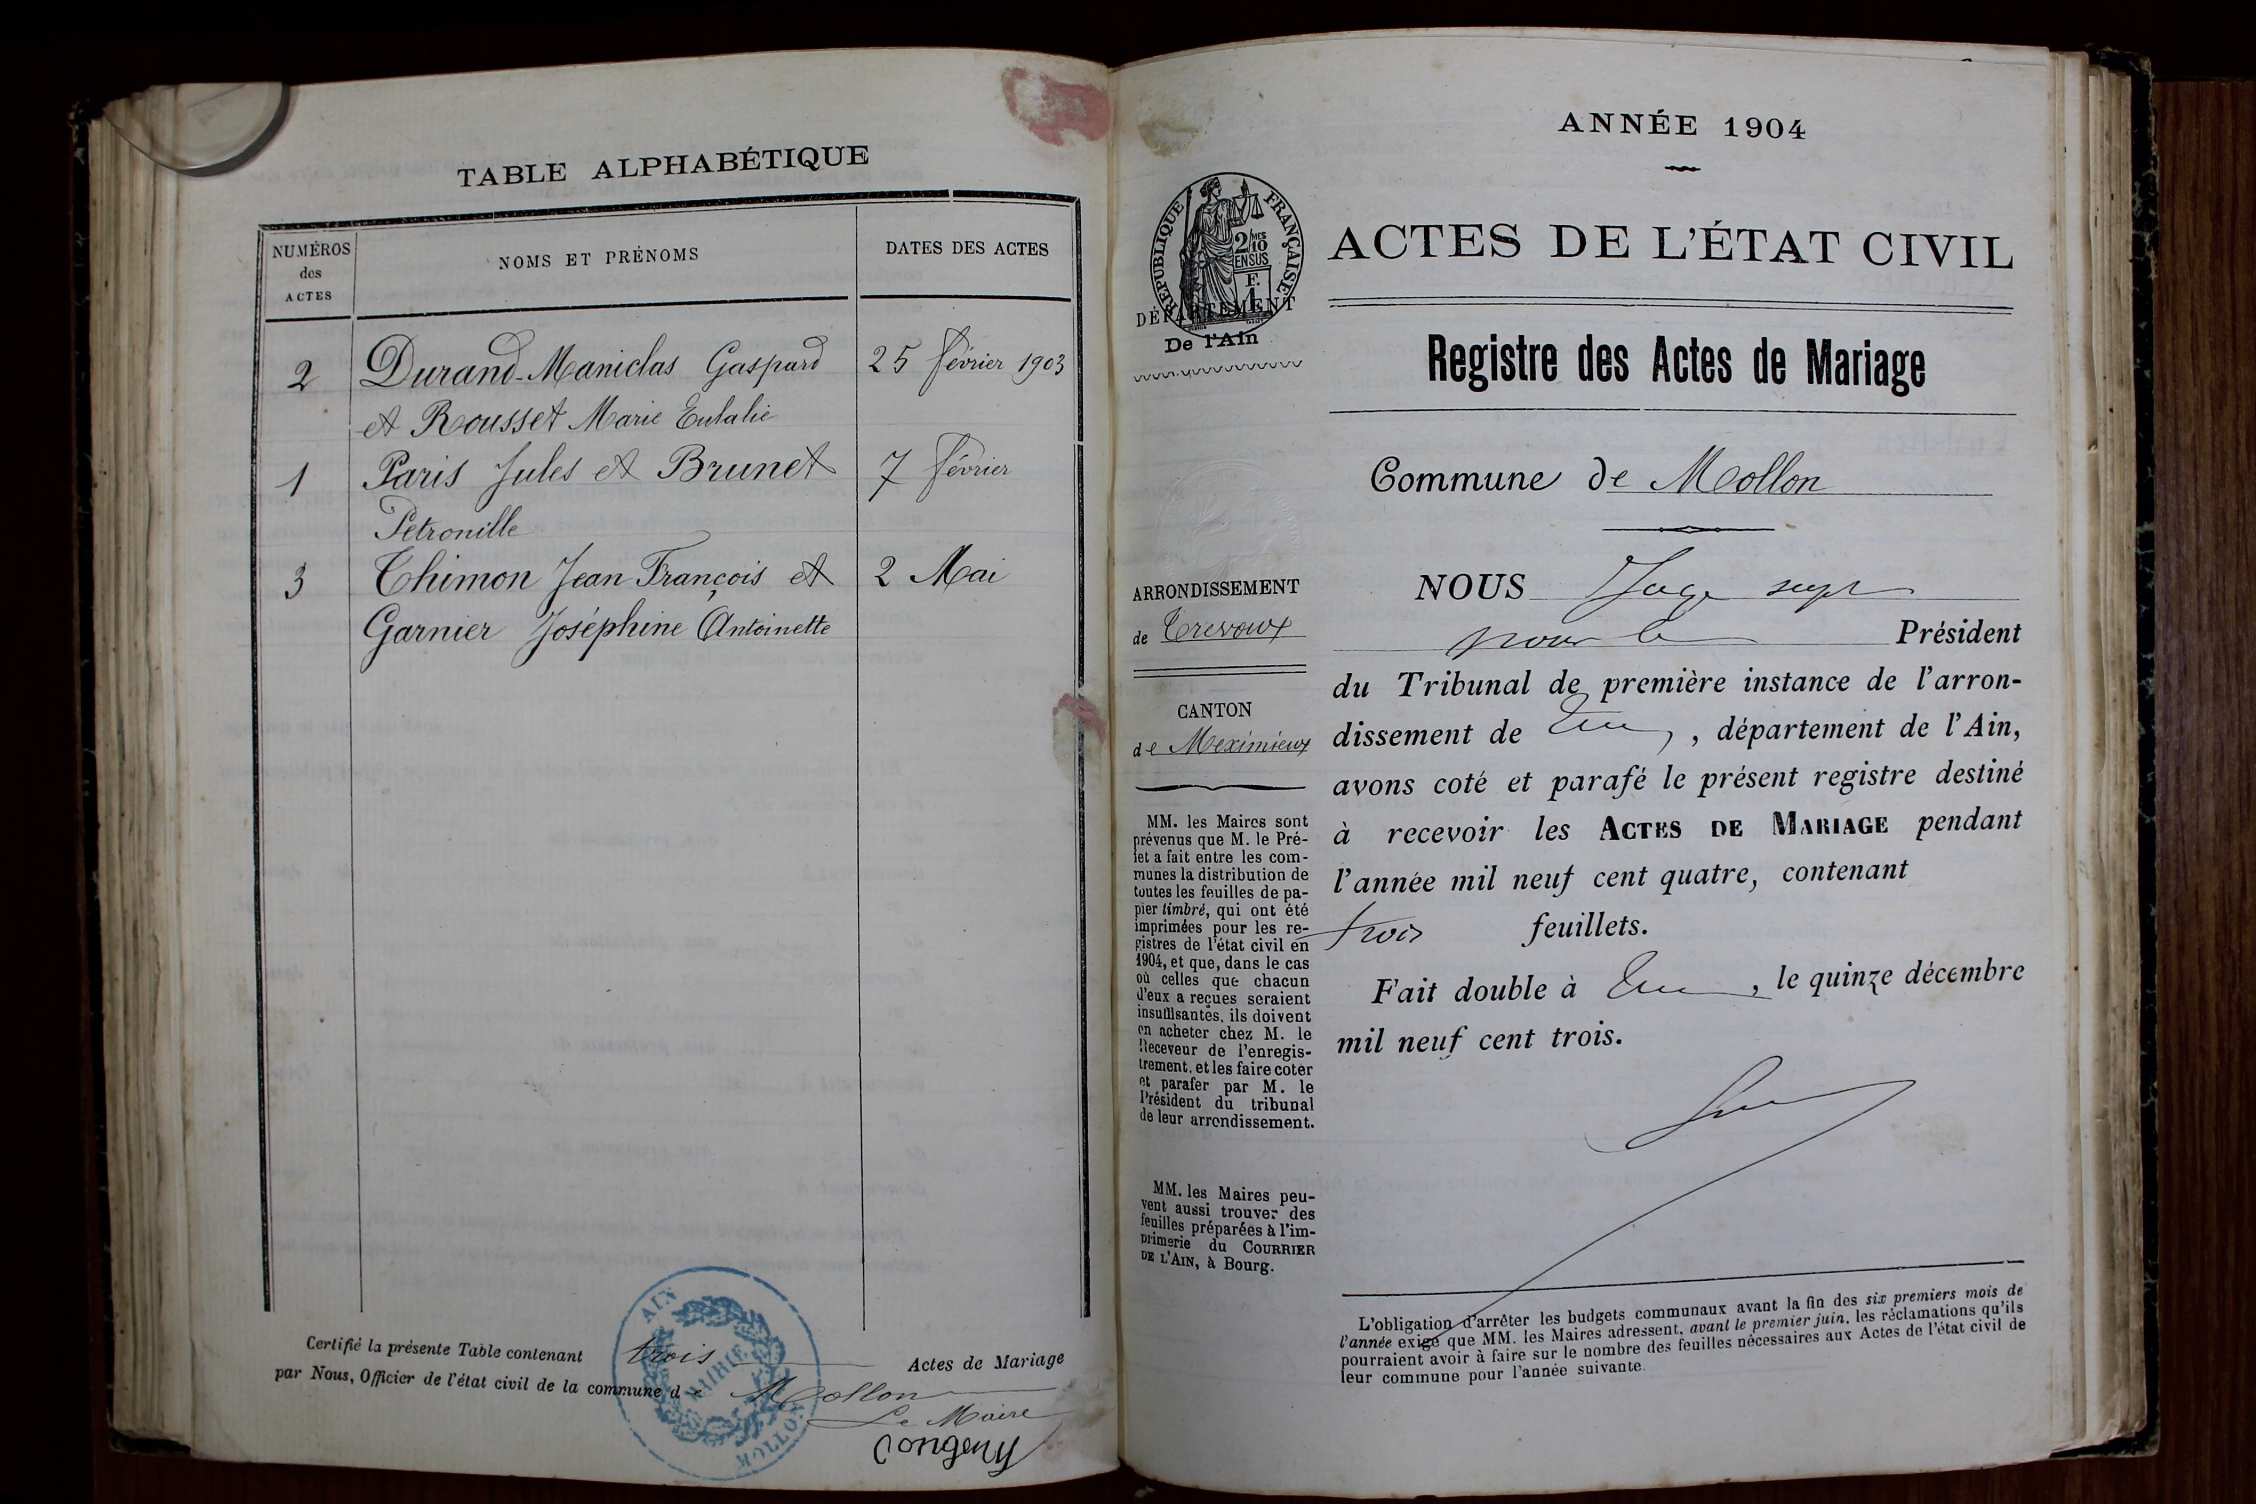 TABLE ALPHABÉTIQUE
NUMÉROS
des
ACTES
NOMS ET PRÉNOMS
DATES DES ACTES
2 Durand-Maniclas Gaspard 25 février 1903
et Rousset Marie Eulalie
1 Paris Jules et Brunet 7 février
Petronille
3 Thimon Jean François et 2 Mai
Garnier Joséphine Antoinette
Certifié la présente Table contenant trois Actes de Mariage
par Nous, Officier de l'état civil de la commune de Mollon
Le Maire
AIN
MAIRIE
MOLLON
ANNÉE 1904
RÉPUBLIQUE FRANÇAISE
2/10 MES
EN SUS
F.
1
DÉPARTEMENT
De l'Ain
ACTES DE L'ÉTAT CIVIL
Registre des Actes de Mariage
Commune de Mollon
ARRONDISSEMENT
de Trevoux
CANTON
de Meximieux
MM. les Maires sont
prévenus que M. le Pré-
fet a fait entre les com-
munes la distribution de
toutes les feuilles de pa-
pier timbré, qui ont été
imprimées pour les re-
gistres de l'état civil en
1904, et que, dans le cas
où celles que chacun
d'eux a reçues seraient
insuffisantes, ils doivent
en acheter chez M. le
Receveur de l'enregis-
trement, et les faire coter
et parafer par M. le
Président du tribunal
de leur arrondissement.
MM. les Maires peu-
vent aussi trouver des
feuilles préparées à l'im-
primerie du COURRIER
DE L'AIN, à Bourg.
NOUS Juge supt
pour le Président
du Tribunal de première instance de l'arron-
dissement de , département de l'Ain,
avons coté et parafé le présent registre destiné
à recevoir les ACTES DE MARIAGE pendant
l'année mil neuf cent quatre, contenant
trois feuillets.
Fait double à , le quinze décembre
mil neuf cent trois.
L'obligation d'arrêter les budgets communaux avant la fin des six premiers mois de
l'année exige que MM. les Maires adressent, avant le premier juin, les réclamations qu'ils
pourraient avoir à faire sur le nombre des feuilles nécessaires aux Actes de l'état civil de
leur commune pour l'année suivante.